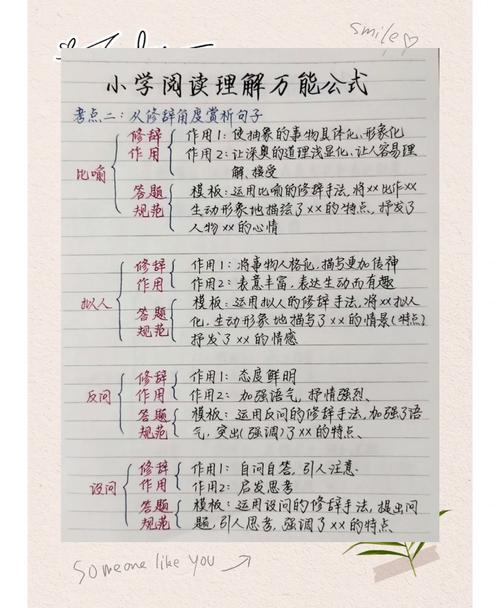 smile
小学阅读理解万能公式
考点二：从修辞角度赏析句子
比喻
修辞
作用
作用1：使抽象的事物具体化，形象化
作用2：让深奥的道理浅显化，让人容易理
解、接受
答题
规范
模板：运用比喻的修辞手法，将xx比作xx
生动形象地描绘了xx的特点，抒发了
人物xx的心情
拟人
修辞
作用
作用1：将事物人格化，描写更加传神
作用2：表意丰富，表达生动而有趣
答题
规范
模板：运用拟人的修辞手法，将xx拟人
化，生动形象地描写了xx的情景(特点)
抒发了xx的情感
反问
修辞
作用
作用1：态度鲜明
作用2：加强语气，抒情强烈、
答题
规范
模板：运用反问的修辞手法，加强了语
气，突出(强调)了xx的特点、
设问
修辞
作用
作用1：自问自答，引人注意、
作用2：启发思考
答题
规范
模板：运用设问的修辞手法，提出问
题，引人思考，强调了xx的特点
Someone like you